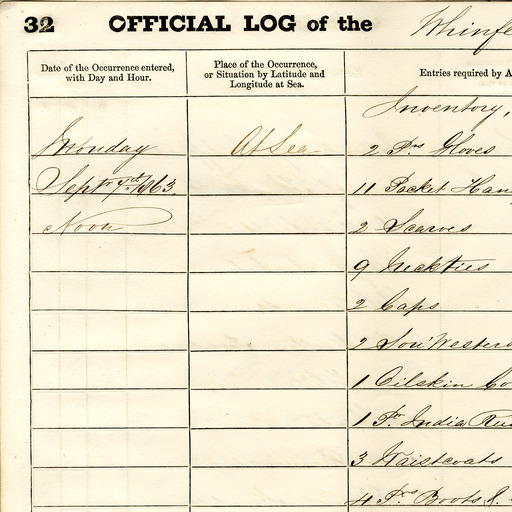 32 OFFICIAL LOG of the
Date of the Occurrence entered,
with Day and Hour.
Place of the Occurrence,
or Situation by Latitude and
Longitude at Sea.
Entries required by A
Inventory,
Monday
At Sea
2 Prs Gloves
Septr 7th 1863.
11 Pocket Han
Noon
2 Scarves
9 Neckties
2 Caps
2 Sou'Westers
1 Oilskin Co
1 Pr India Ru
3 Waistcoats
4 Prs Boots &